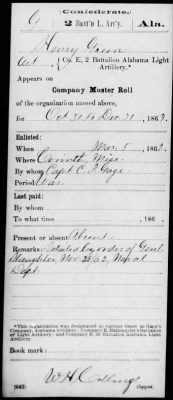 (Confederate.)
G 2 Batt'n L. Art'y. Ala.
Henry Green
, Co. E, 2 Battalion Alabama Light
Artillery.*
Appears on
Company Muster Roll
of the organization named above,
for Oct 31 to Dec 31, 186
Enlisted:
When Mar 5, 186
Where Corinth, Miss.
By whom Capt. C. P. Gage
Period War
Last paid:
By whom
To what time , 186 .
Present or absent Absent
Remarks: Detailed by order of Genl
Slaughter, Nov 28/62, Naval
Dept
*This organization was designated at various times as Gage's
Company, Alabama Artillery;
Light Artillery; and Company E, 2d Battalion Alabama Light
Artillery.
Book mark:
W H
(642) Copyist.